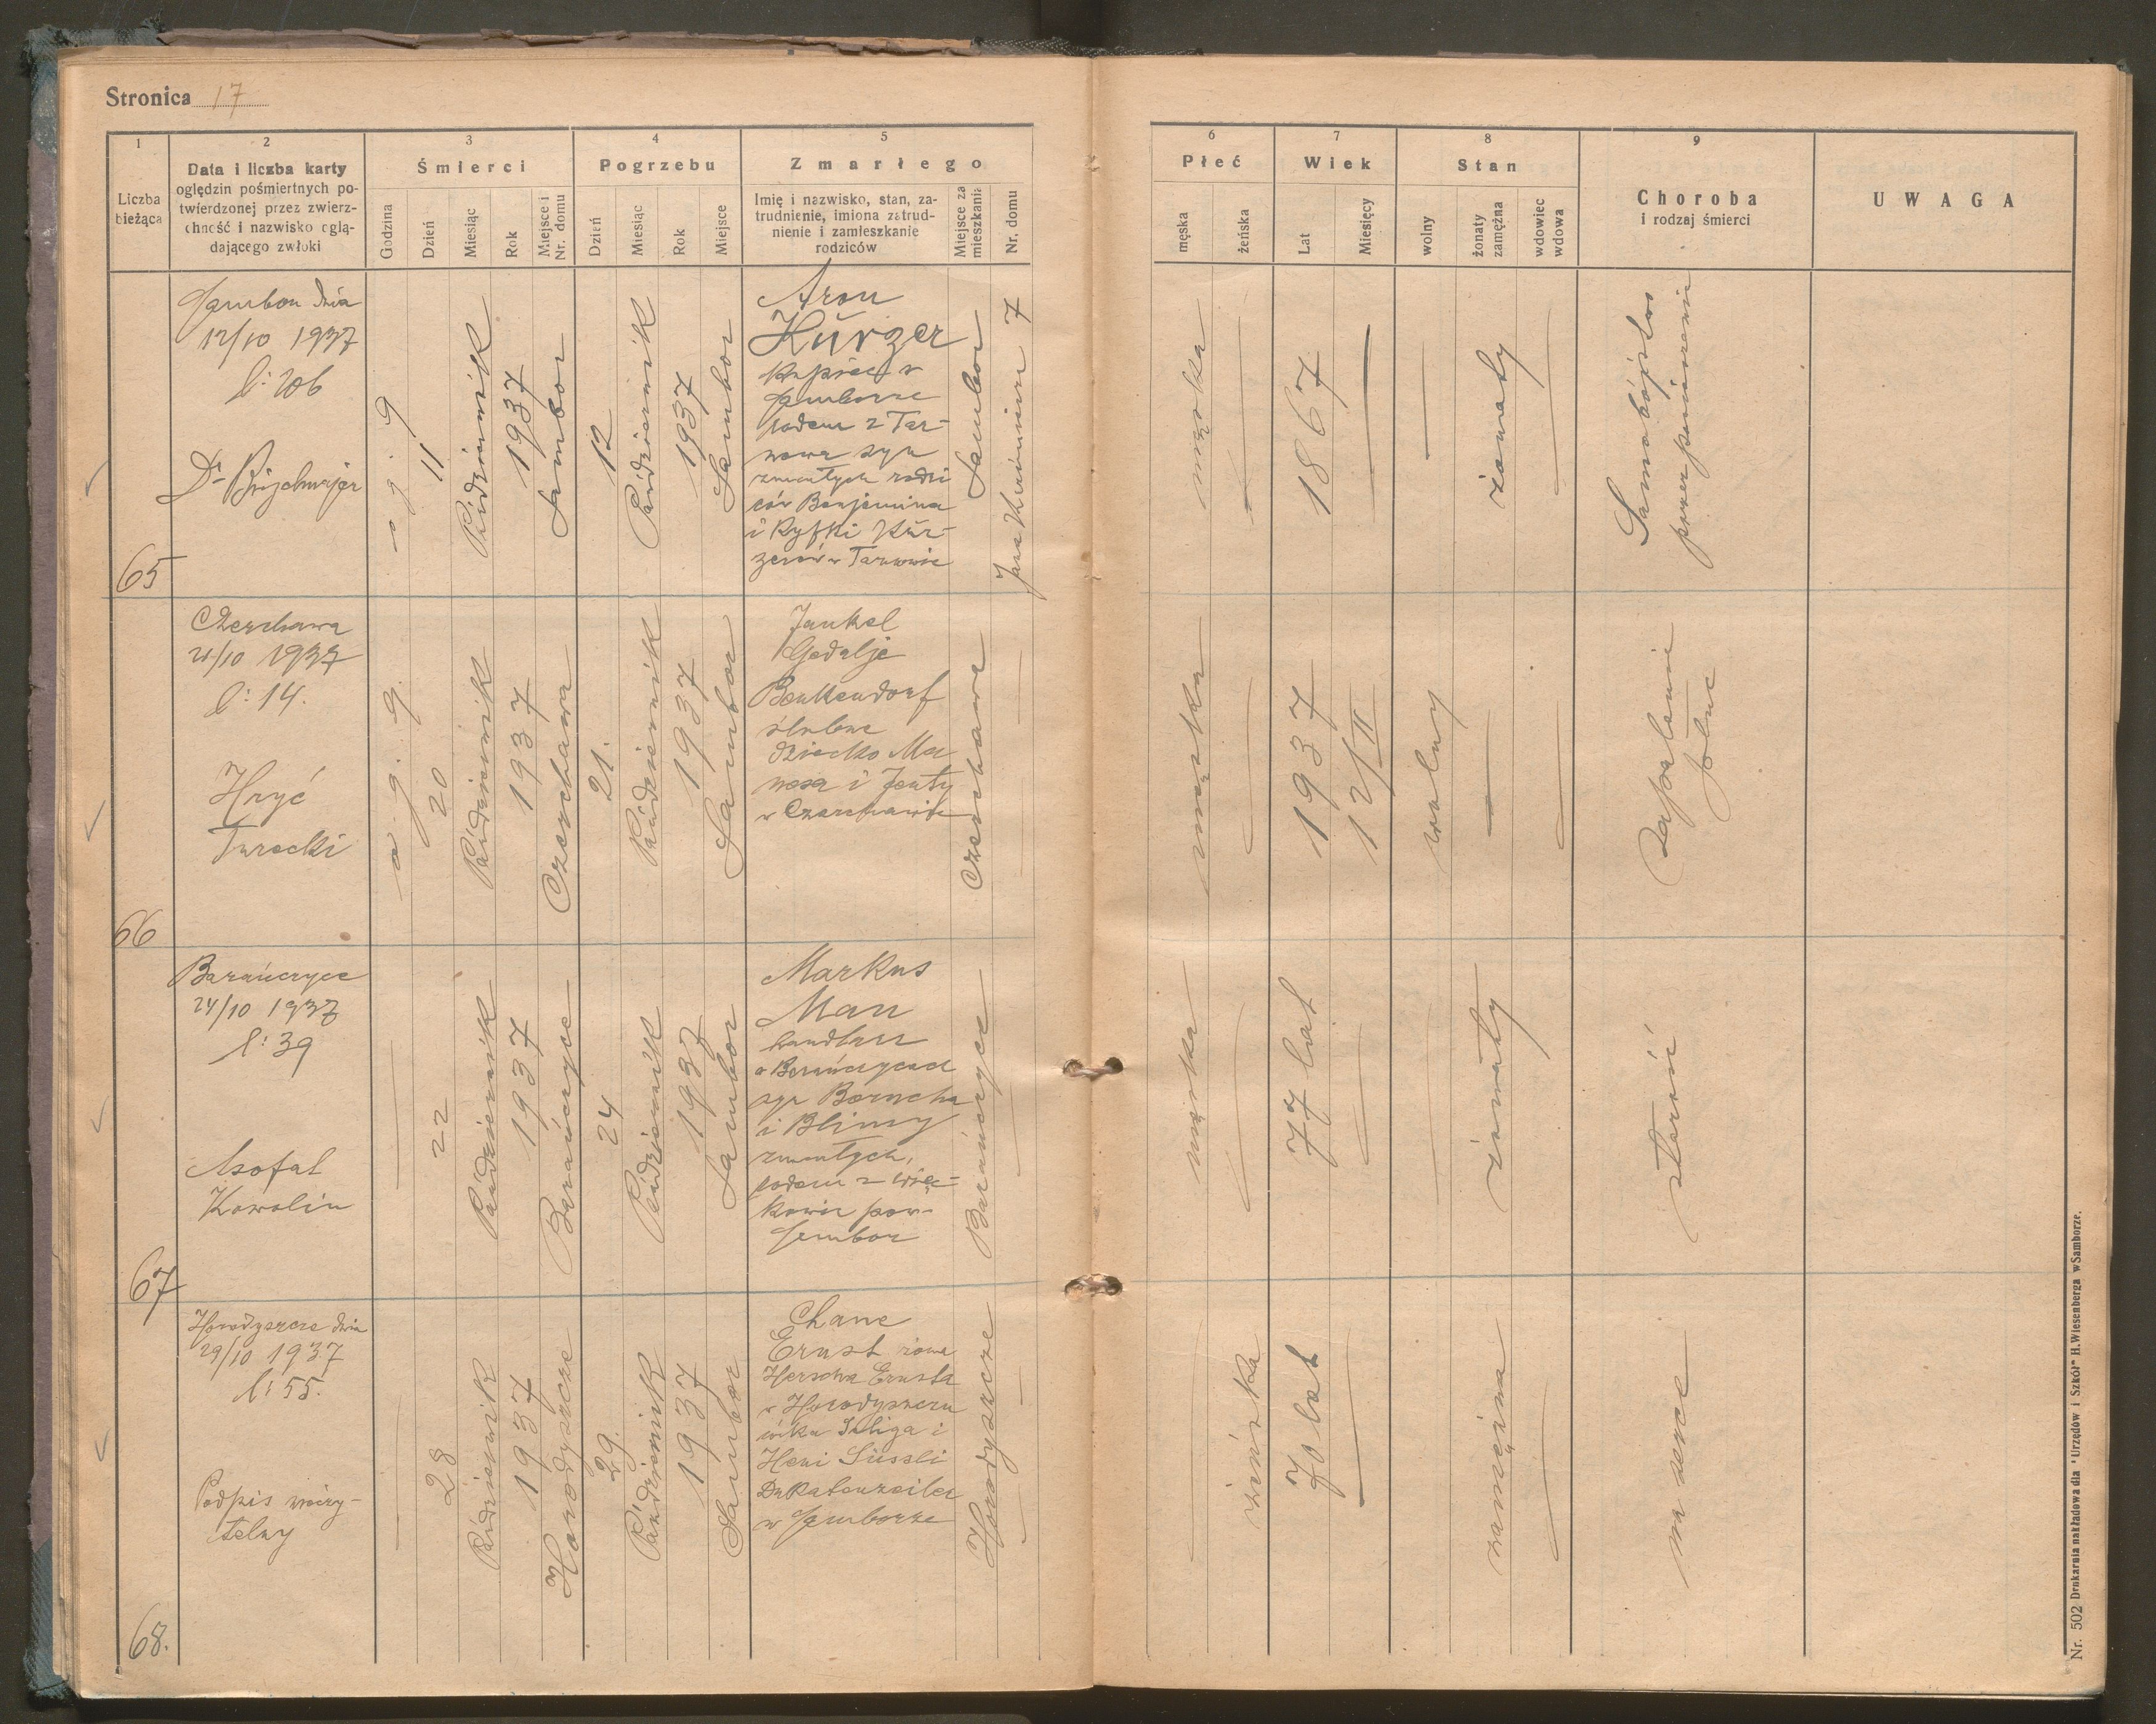 Stronica 17
1
Liczba
bieżąca
2
Data i liczba karty
oględzin pośmiertnych po-
twierdzonej przez zwierz-
chność i nazwisko oglą-
dającego zwłoki
3
Śmierci
Godzina
Dzień
Miesiąc
Rok
Miejsce i
Nr. domu
4
Pogrzebu
Dzień
Miesiąc
Rok
Miejsce
5
Zmarłego
Imię i nazwisko, stan, za-
trudnienie, imiona zatrud-
nienie i zamieszkanie
rodziców
Miejsce za
mieszkania
Nr. domu
6
Płeć
męska
żeńska
7
Wiek
Lat
Miesięcy
8
Stan
wolny
żonaty
zamężna
wdowiec
wdowa
9
Choroba
i rodzaj śmierci
UWAGA
65
Sambor dnia
12/10 1937
l: 206
Dr
o g. 9
11
Październik
1937
Sambor
12
Październik
1937
Sambor
Aron
Kürzer
kupiec w
Samborze
rodem z Tar-
nowa syn
zmarłych rodzi
ców Benjamina
i Ryfki Kür-
zerów w Tarnowie
Sambor
7
męska
1867
żonaty
Samobójstwo
przez powieszenie
66
Czerchawa
21/10 1937
l: 14.
Hryć
Turecki
o g. 9.
20
Październik
1937
Czerchawa
21.
Październik
1937
Sambor
Jankel
Gedalje
Benkendorf
ślubne
dziecko Ma
nesa i Jenty
w Czerchawie
Czerchawa
męska
1937
12/II
wolny
Zapalenie
płuc
67
Barańczyce
24/10 1937
l: 39
Kowalin
22
Październik
1937
Barańczyce
24
Październik
1937
Sambor
Markus
Man
handlarz
w Barańczycach
syn Borucha
i Blimy
zmarłych,
rodem z Wię-
kowic pow.
Sambor
Barańczyce
męska
77 lat
żonaty
starość
68.
Horodyszcze dnia
29/10 1937
l: 55.
Podpis nieczy-
telny
28
Październik
1937
Horodyszcze
29.
Październik
1937
Sambor
Chane
Ernst żona
Herscha Ernsta
w Horodyszczu
córka Seliga i
Heni Süssli
Dukatenzeiler
w Samborze
Horodyszcze
żeńska
70 lat
zamężna
na serce
Nr. 502 Drukarnia nakładowa dla "Urzędów i Szkół" H. Wiesenberga w Samborze.